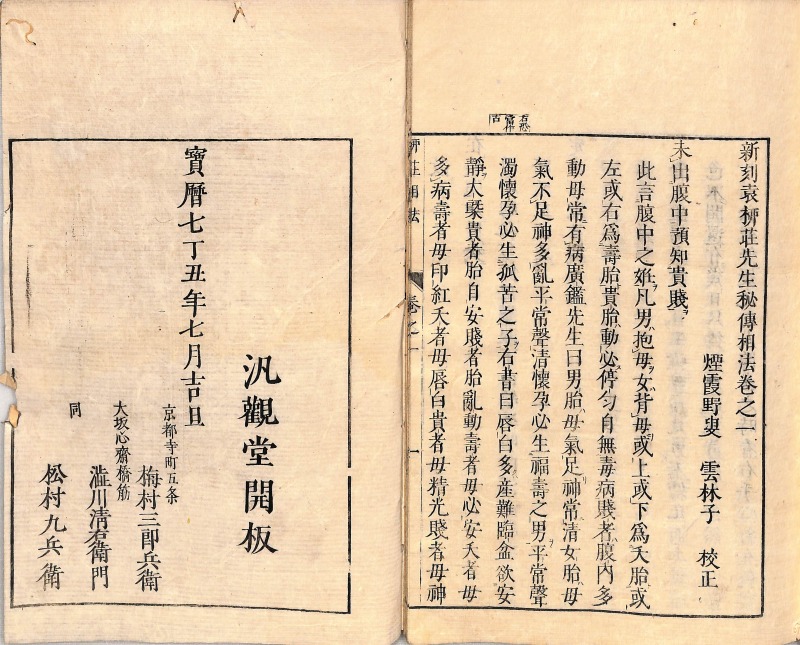 新刻袁柳莊先生秘傳相法卷之一
煙霞野叟 雲林子 校正
未出腹中預知貴賤
此言腹中之姙凡男抱母女背母或上或下爲夭胎或
左或右爲壽胎貴胎動必停匀自無毒病賤者腹內多
動母常有病廣鑑先生曰男胎母氣足神常清女胎母
氣不足神多亂平常聲清懷孕必生福壽之男平常聲
濁懷孕必生孤苦之子右書曰唇白多産難臨盆欲安
靜大槩貴者胎自安賤者胎亂動壽者母必安夭者母
多病壽者母印紅夭者母唇白貴者母精光賤者母神
柳莊相法 卷之一 一
寶曆七丁丑年七月吉旦
汎觀堂開板
京都寺町五条
梅村三郎兵衛
大坂心齋橋筋
澁川清右衛門
同
松村九兵衛